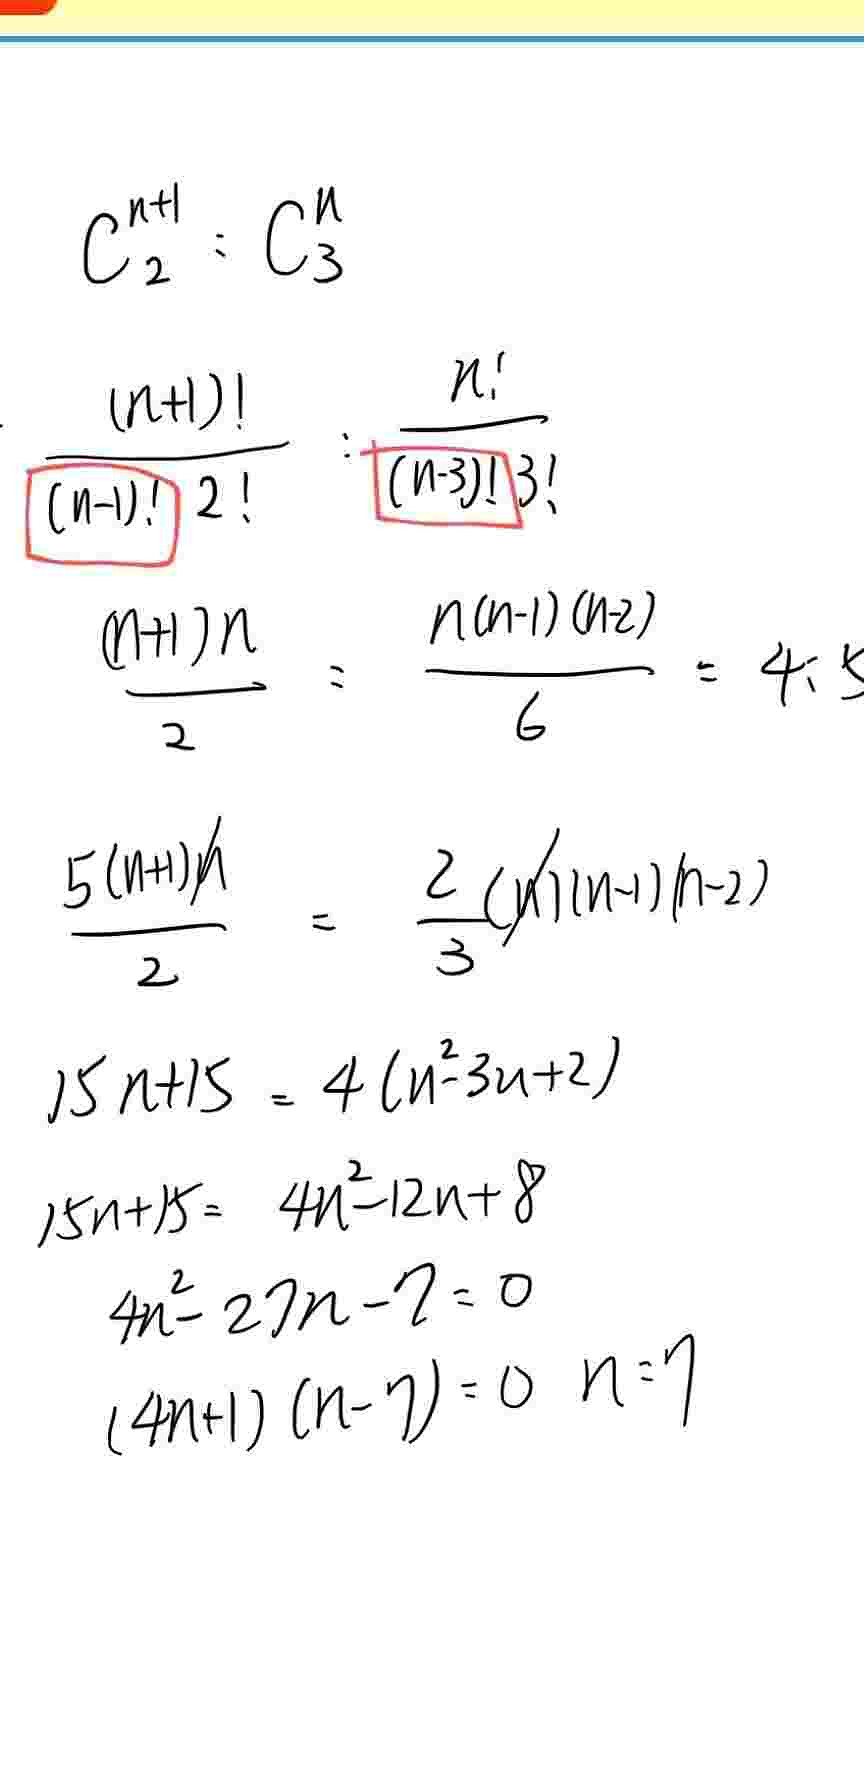 C₂ⁿ⁺¹ : C₃ⁿ
(n+1)! / (n-1)! 2! : n! / (n-3)! 3!
(n+1)n / 2 : n(n-1)(n-2) / 6 = 4:5
5(n+1)n / 2 = 2/3 (n)(n-1)(n-2)
15n+15 = 4(n²-3n+2)
15n+15 = 4n²-12n+8
4n²-27n-7=0
(4n+1)(n-7)=0 n=7